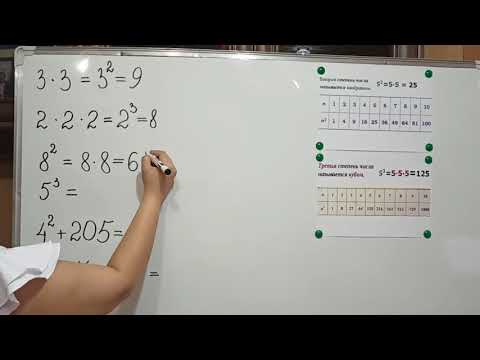 3 · 3 = 3² = 9
2 · 2 · 2 = 2³ = 8
8² = 8 · 8 = 6
5³ =
4² + 205 =
=
Вторая степень числа называется квадратом. 5² = 5·5 = 25
n 1 2 3 4 5 6 7 8 9 10
n² 1 4 9 16 25 36 49 64 81 100
Третья степень числа
называется кубом. 5³ = 5·5·5 = 125
n 1 2 3 4 5 6 7 8 9 10
n³ 1 8 27 64 125 216 343 512 729 1000